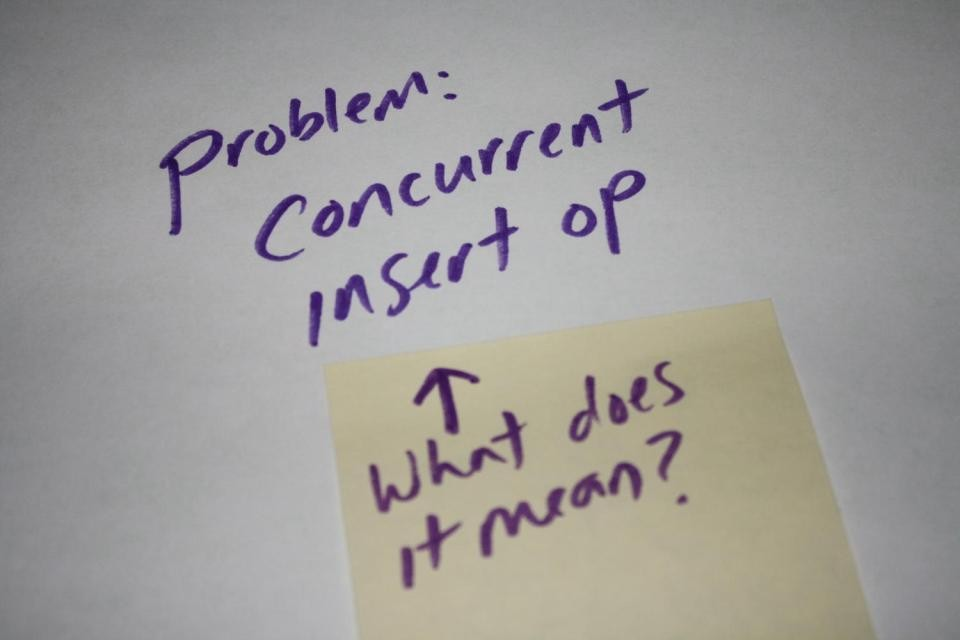 Problem:
Concurrent
insert op
↑
What does
it mean?